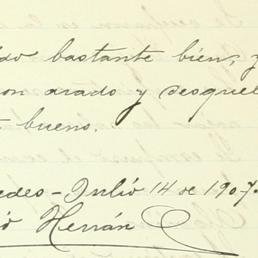 do bastante bien, y
on arado y desquel
bueno.
edes - Julio 14 de 1907.
io Herrán